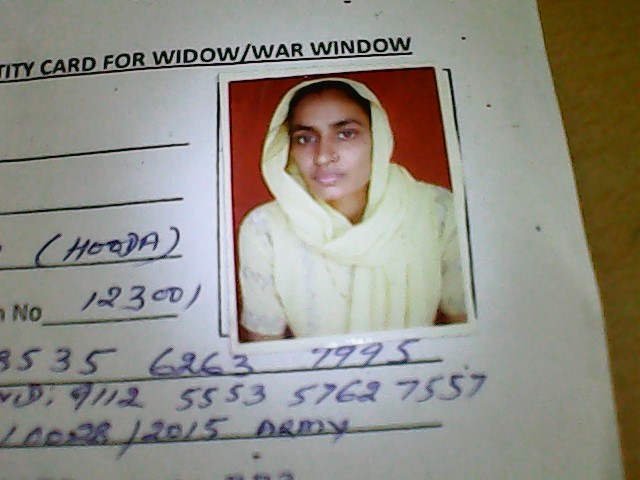 TITY CARD FOR WIDOW/WAR WINDOW
(HOODA)
No 123001
3535 6263 7995
ID: 9112 5553 5762 7557
/2015 ARMY